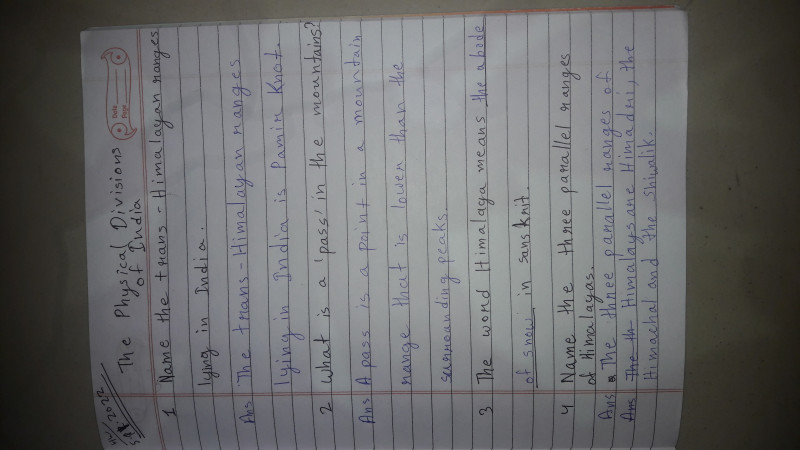 The Physical Divisions
of India
Date
Page
1 Name the trans-Himalayan ranges
lying in India.
Ans The trans-Himalayan ranges
lying in India is Pamir Knot.
2 What is a 'pass' in the mountains?
Ans A pass is a point in a mountain
range that is lower than the
surrounding peaks.
3 The word Himalaya means the abode
of snow in sansknit.
4 Name the three parallel ranges
of Himalayas.
Ans The three parallel ranges of
Ans The th Himalays are Himadri, the
Himachal and the Shiwalik.